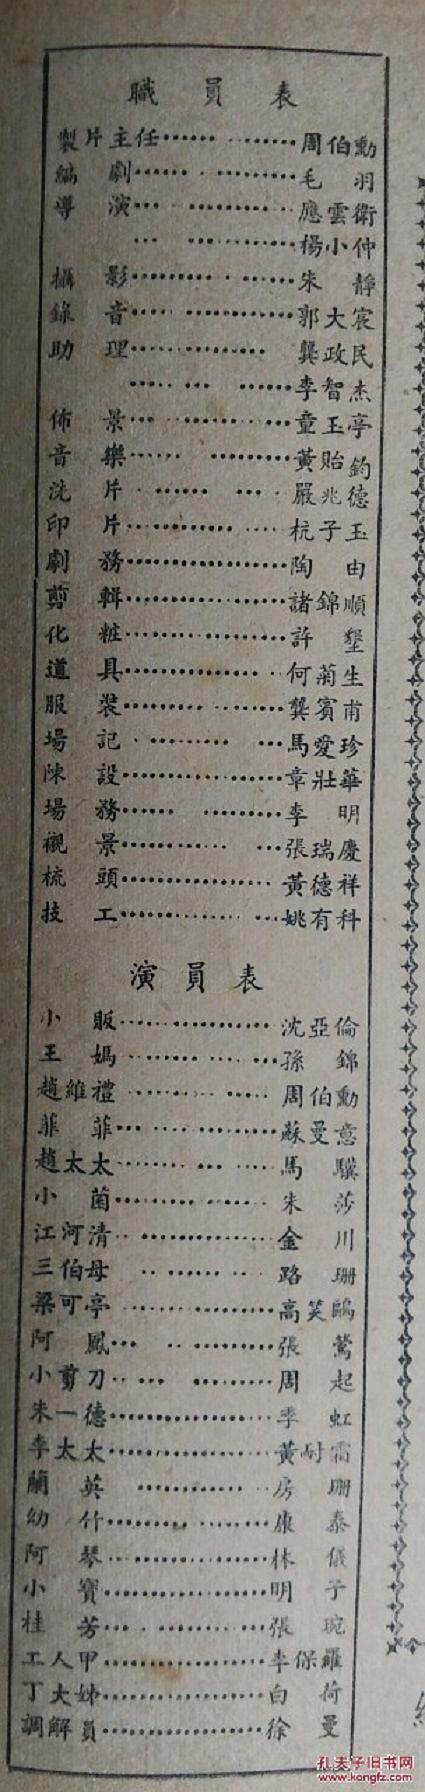 職員表
製片主任……………周伯勳
編劇……………毛羽
導演……………應雲衛
……………楊小仲
攝影……………朱靜
錄音……………郭大宸
助理……………龔政民
……………李智杰
佈景……………童玉亭
音樂……………黃貽鈞
洗片……………嚴兆德
印片……………杭子玉
劇務……………陶由
剪輯……………諸錦順
化粧……………許墾
道具……………何菊生
服裝……………龔賓甫
場記……………馬愛珍
陳設……………章壯華
場務……………李明
襯景……………張瑞慶
梳頭……………黃德祥
技工……………姚有科
演員表
小販……………沈亞倫
王媽……………孫錦
趙維禮……………周伯勳
菲菲……………蘇曼意
趙太太……………馬驥
小茵……………朱莎
江河清……………金川
三伯母……………路珊
梁可亭……………高笑鷗
阿鳳……………張鶯
小剪刀……………周起
朱一德……………季虹
李太太……………黃耐霜
蘭英……………房珊
幼竹……………康泰
阿琴……………林儀
小寶……………明子
桂芳……………張琬
工人甲……………李保羅
丁大姊……………白荷
調解員……………徐曼
孔夫子旧书网
www.kongfz.com